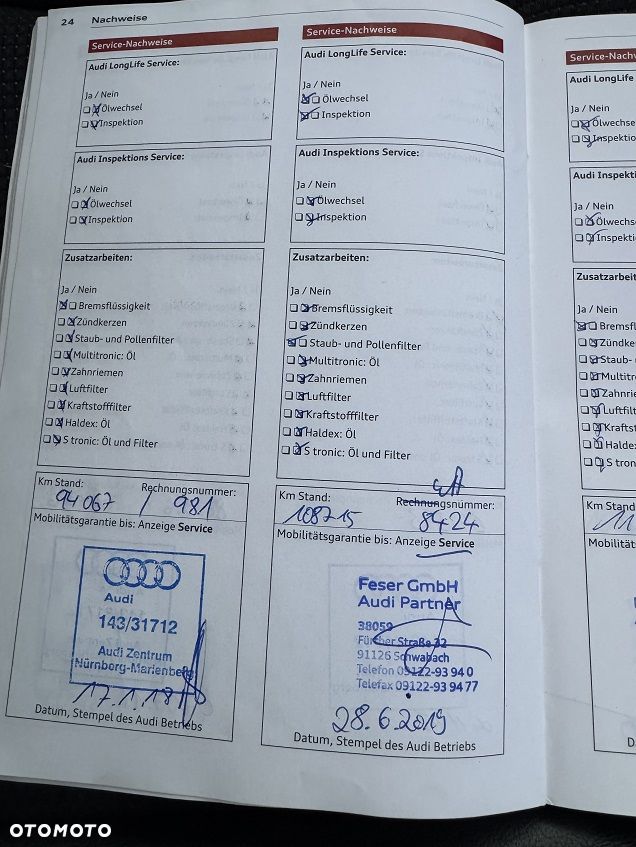 24 Nachweise
Service-Nachweise
Audi LongLife Service:
Ja / Nein
Ölwechsel
Inspektion
Audi Inspektions Service:
Ja / Nein
Ölwechsel
Inspektion
Zusatzarbeiten:
Ja / Nein
Bremsflüssigkeit
Zündkerzen
Staub- und Pollenfilter
Multitronic: Öl
Zahnriemen
Luftfilter
Kraftstofffilter
Haldex: Öl
S tronic: Öl und Filter
Km Stand: Rechnungsnummer:
94 067 / 981
Mobilitätsgarantie bis: Anzeige Service
Audi
143/31712
Audi Zentrum
Nürnberg-Marienberg
17.1.18
Datum, Stempel des Audi Betriebs
Service-Nachweise
Audi LongLife Service:
Ja / Nein
Ölwechsel
Inspektion
Audi Inspektions Service:
Ja / Nein
Ölwechsel
Inspektion
Zusatzarbeiten:
Ja / Nein
Bremsflüssigkeit
Zündkerzen
Staub- und Pollenfilter
Multitronic: Öl
Zahnriemen
Luftfilter
Kraftstofffilter
Haldex: Öl
S tronic: Öl und Filter
Km Stand: Rechnungsnummer:
108715 8424
Mobilitätsgarantie bis: Anzeige Service
Feser GmbH
Audi Partner
38059
Fürther Straße 32
91126 Schwabach
Telefon 09122-93 94 0
Telefax 09122-93 94 77
28.6.2019
Datum, Stempel des Audi Betriebs
Service-Nachw
Audi LongLife
Ja / Nein
Ölwechse
Inspektio
Audi Inspekti
Ja / Nein
Ölwechs
Inspekti
Zusatzarbeit
Ja / Nein
Bremsfl
Zündke
Staub-
Multitr
Zahnrie
Luftfilt
Krafts
Halde
S tron
Km Stand
11
Mobilität
D
OTOMOTO